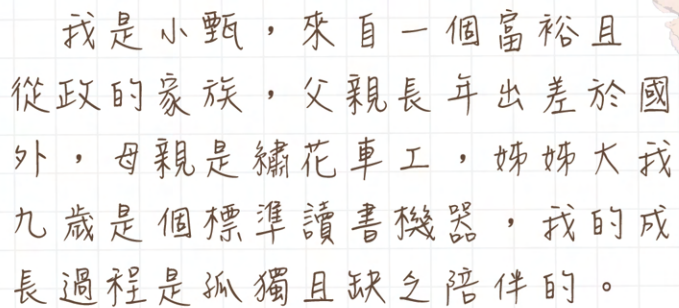 我是小甄，來自一個富裕且
從政的家族，父親長年出差於國
外，母親是繡花車工，姊姊大我
九歲是個標準讀書機器，我的成
長過程是孤獨且缺乏陪伴的。